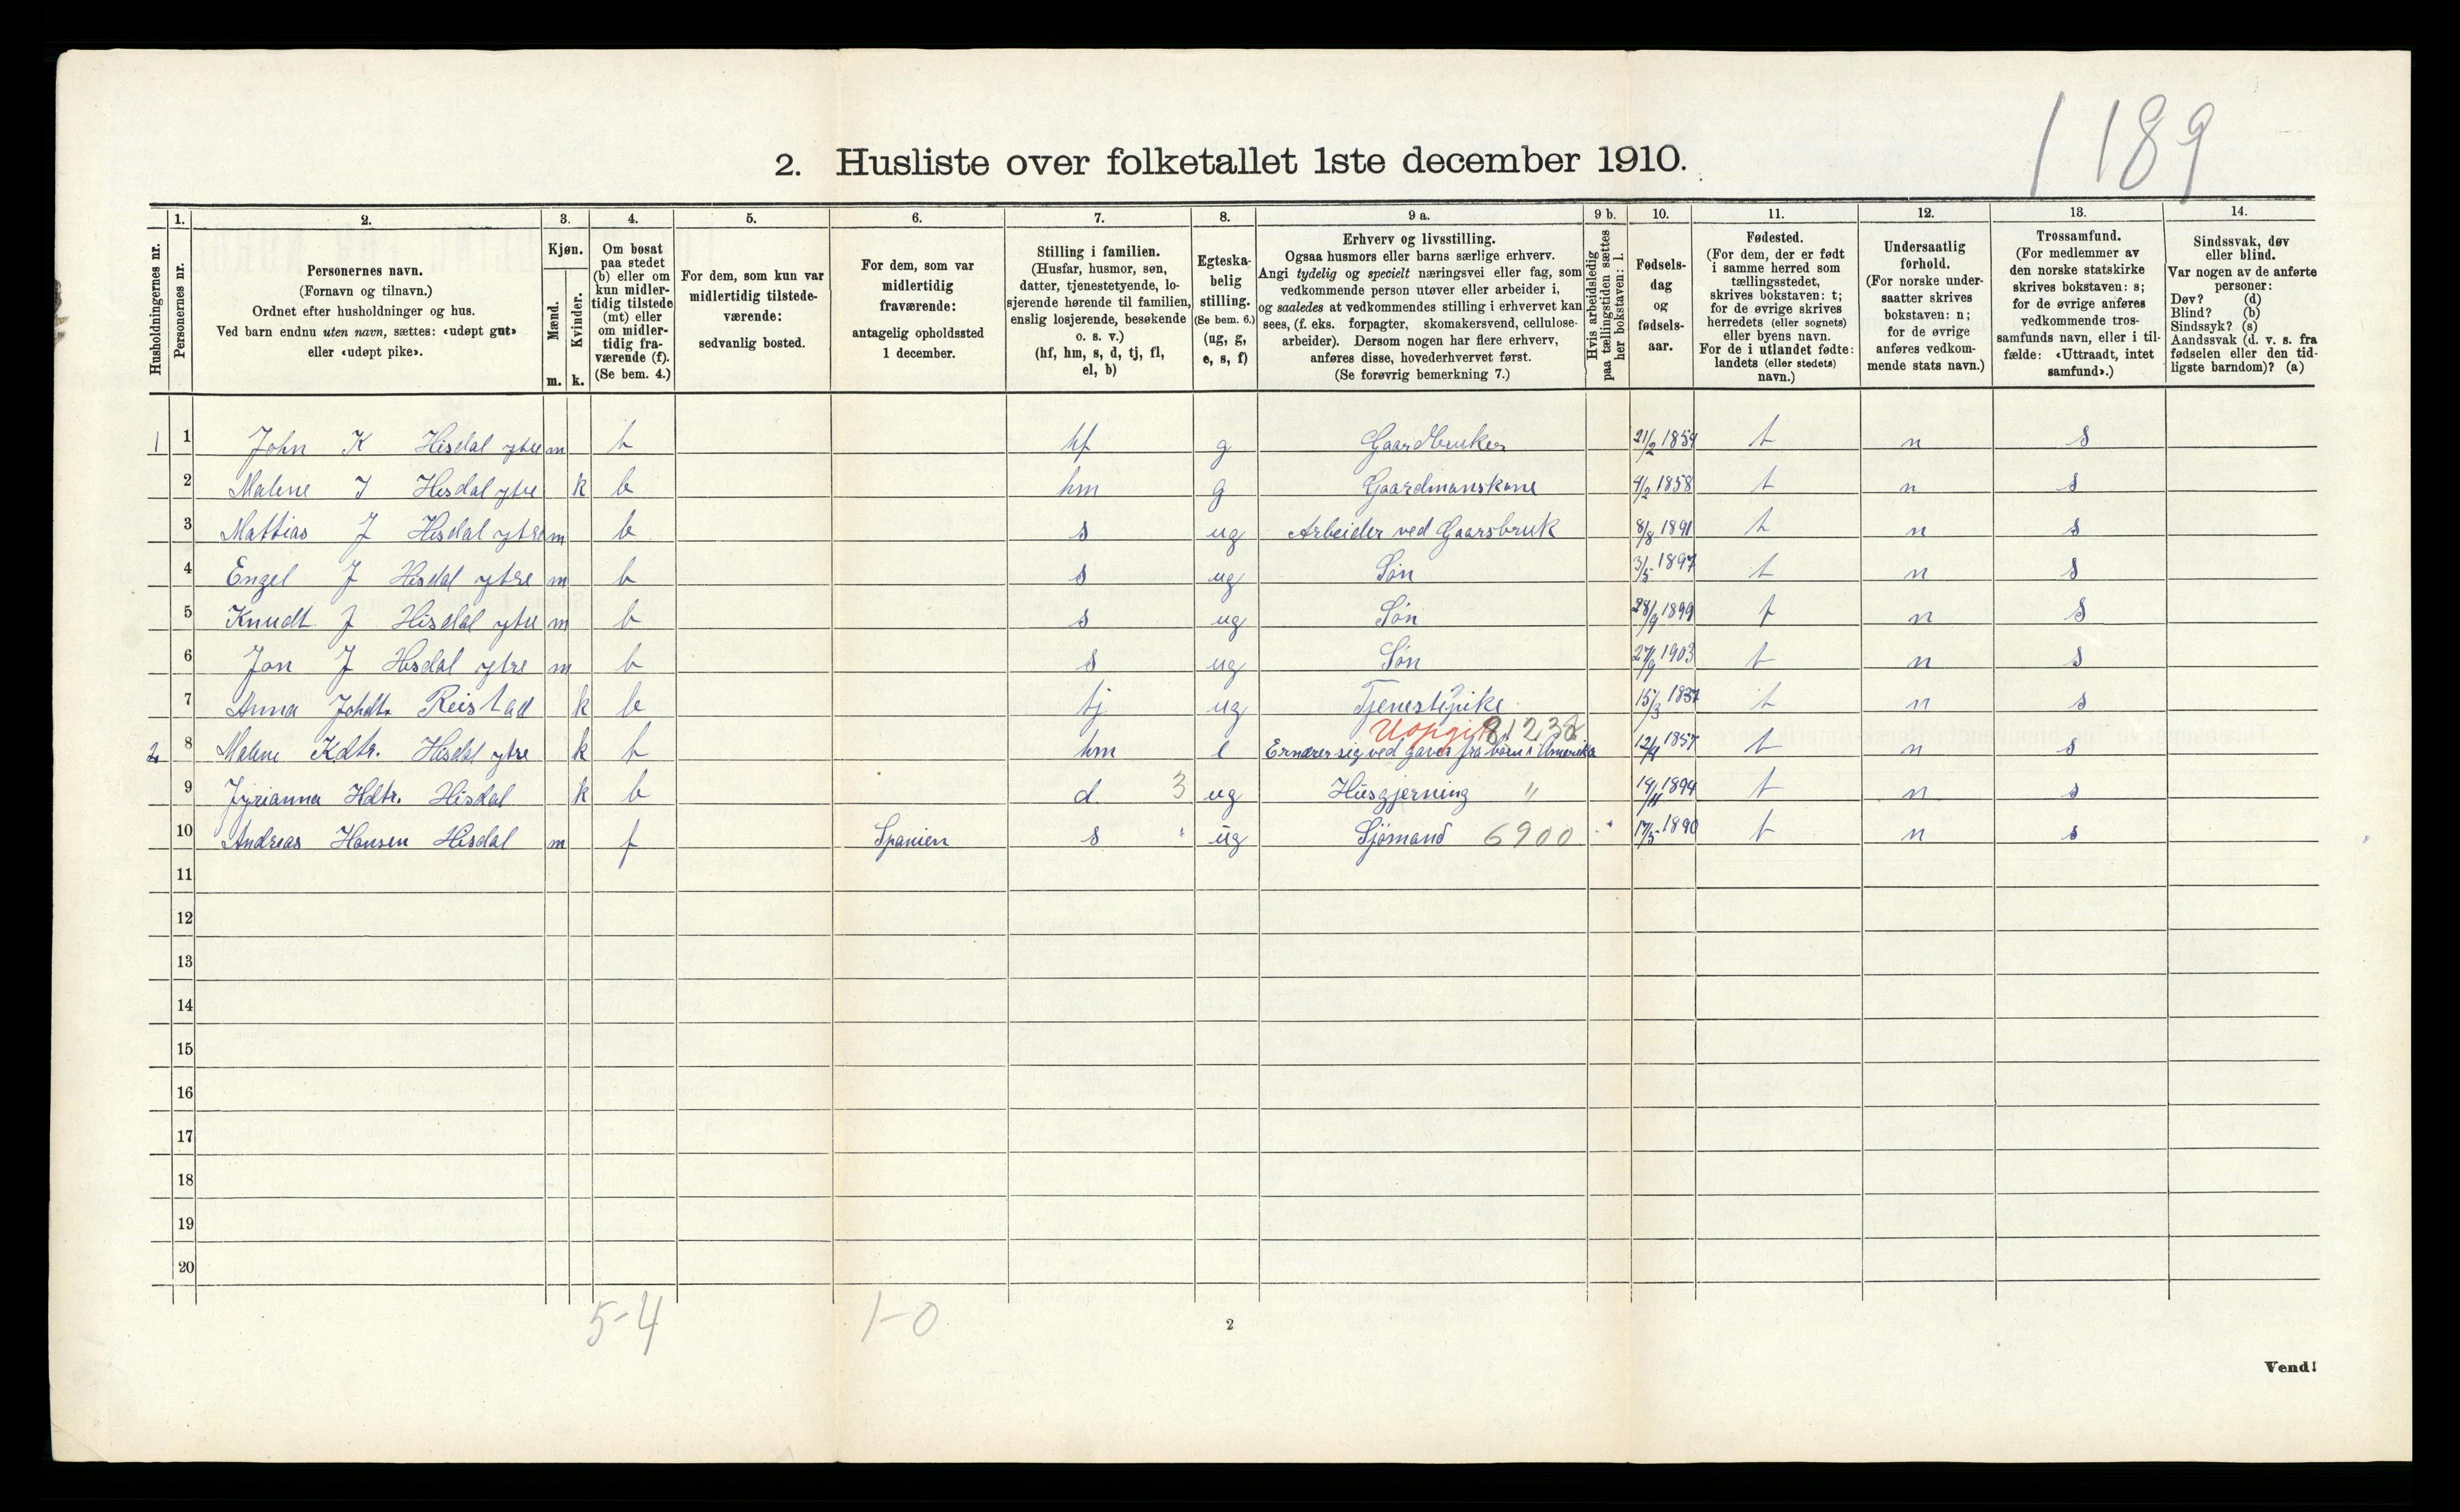 1189
2. Husliste over folketallet 1ste december 1910.
Husholdningernes nr.
1.
Personernes nr.
2.
Personernes navn.
(Fornavn og tilnavn.)
Ordnet efter husholdninger og hus.
Ved barn endnu uten navn, sættes: «udøpt gut»
eller «udøpt pike».
3.
Kjøn.
Mænd.
Kvinder.
m. k.
4.
Om bosat
paa stedet
(b) eller om
kun midler-
tidig tilstede
(mt) eller
om midler-
tidig fra-
værende (f).
(Se bem. 4.)
5.
For dem, som kun var
midlertidig tilstede-
værende:
sedvanlig bosted.
6.
For dem, som var
midlertidig
fraværende:
antagelig opholdssted
1 december.
7.
Stilling i familien.
(Husfar, husmor, søn,
datter, tjenestetyende, lo-
sjerende hørende til familien,
enslig losjerende, besøkende
o. s. v.)
(hf, hm, s, d, tj, fl,
el, b)
8.
Egteska-
belig
stilling.
(Se bem. 6.)
(ug, g,
e, s, f)
9 a.
Erhverv og livsstilling.
Ogsaa husmors eller barns særlige erhverv.
Angi tydelig og specielt næringsvei eller fag, som
vedkommende person utøver eller arbeider i,
og saaledes at vedkommendes stilling i erhvervet kan
sees, (f. eks. forpagter, skomakersvend, cellulose-
arbeider). Dersom nogen har flere erhverv,
anføres disse, hovederhvervet først.
(Se forøvrig bemerkning 7.)
9 b.
Hvis arbeidsledig
paa tællingstiden sættes
her bokstaven: l.
10.
Fødsels-
dag
og
fødsels-
aar.
11.
Fødested.
(For dem, der er født
i samme herred som
tællingsstedet,
skrives bokstaven: t;
for de øvrige skrives
herredets (eller sognets)
eller byens navn.
For de i utlandet fødte:
landets (eller stedets)
navn.)
12.
Undersaatlig
forhold.
(For norske under-
saatter skrives
bokstaven: n;
for de øvrige
anføres vedkom-
mende stats navn.)
13.
Trossamfund.
(For medlemmer av
den norske statskirke
skrives bokstaven: s;
for de øvrige anføres
vedkommende tros-
samfunds navn, eller i til-
fælde: «Uttraadt, intet
samfund».)
14.
Sindssvak, døv
eller blind.
Var nogen av de anførte
personer:
Døv? (d)
Blind? (b)
Sindssyk? (s)
Aandssvak (d. v. s. fra
fødselen eller den tid-
ligste barndom)? (a)
1 1 John K Hisdal ytre m b hf g Gaardbruker 21/2 1859 t n s
2 Malene J Hisdal ytre k b hm g Gaardmanskone 4/2 1858 t n s
3 Mattias J Hisdal ytre m b s ug Arbeider ved Gaarsbruk 8/8 1891 t n s
4 Engel J Hisdal ytre m b s ug Søn 3/5 1897 t n s
5 Knudt J Hisdal ytre m b s ug Søn 28/9 1899 t n s
6 Jon J Hisdal ytre m b s ug Søn 27/9 1903 t n s
7 Anna Johdtr Reistad k b tj ug Tjenestepike 15/3 1837 t n s
Uopgit
2 8 Malene Kdtr. Hisdal ytre k b hm e Ernærer sig ved gaver fra børn i Amerika 12/4 1857 t n s
9 Jyrianna Hdtr. Hisdal k b d 3 ug Husgjerning " 14/11 1894 t n s
10 Andreas Hansen Hisdal m f Spanien s ug Sjömand 6900 17/5 1890 t n s
11
12
13
14
15
16
17
18
19
20
5-4
1-0
2
Vend!